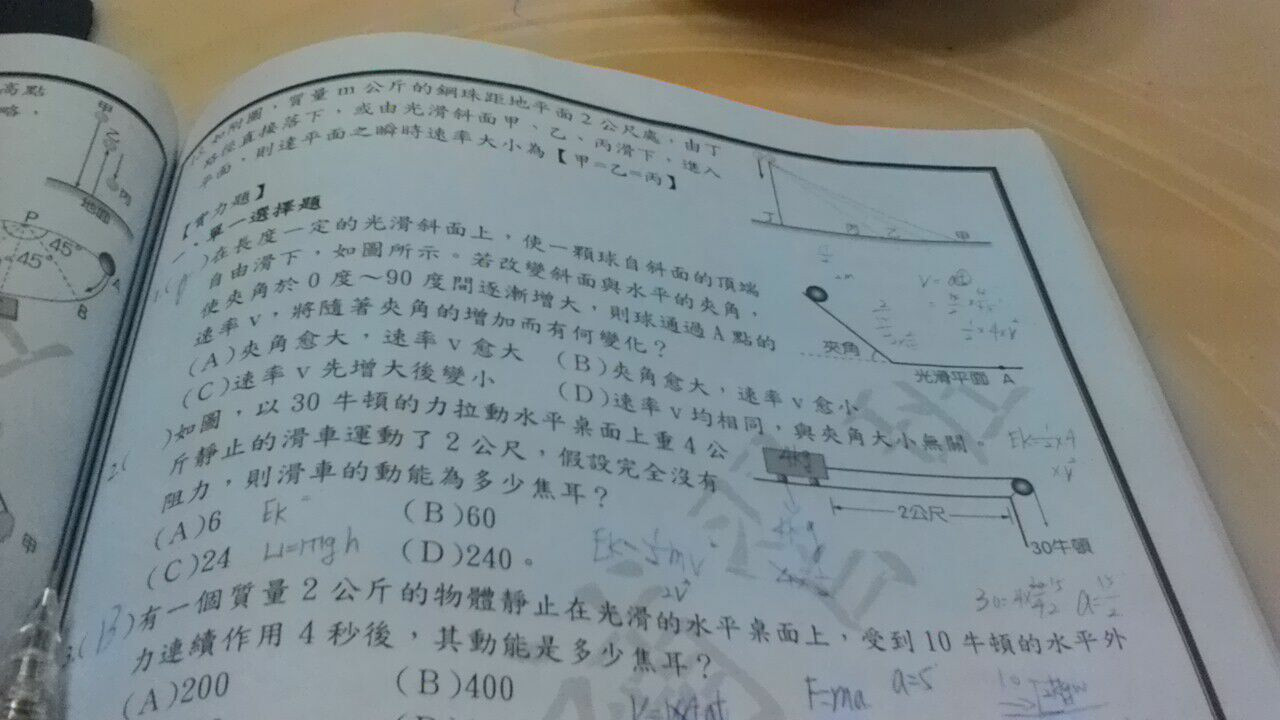 高點
略,
甲
乙
丙
地面
P
45°
45°
A
B
甲
如附圖,質量 m 公斤的鋼珠距地平面 2 公尺處,由丁
路徑直接落下,或由光滑斜面甲、乙、丙滑下,進入
平面,則達平面之瞬時速率大小為【甲=乙=丙】
丁
丙
乙
甲
【實力題】
一、單一選擇題
1.( )在長度一定的光滑斜面上,使一顆球自斜面的頂端
自由滑下,如圖所示。若改變斜面與水平的夾角,
使夾角於 0 度~90 度間逐漸增大,則球通過 A 點的
速率 v,將隨著夾角的增加而有何變化?
(A)夾角愈大,速率 v 愈大 (B)夾角愈大,速率 v 愈小
(C)速率 v 先增大後變小 (D)速率 v 均相同,與夾角大小無關。
夾角
光滑平面 A
2.( )如圖,以 30 牛頓的力拉動水平桌面上重 4 公
斤靜止的滑車運動了 2 公尺,假設完全沒有
阻力,則滑車的動能為多少焦耳?
(A)6 (B)60
(C)24 (D)240。
4kg
2公尺
30牛頓
Ek
U=mgh
3.(B)有一個質量 2 公斤的物體靜止在光滑的水平桌面上,受到 10 牛頓的水平外
力連續作用 4 秒後,其動能是多少焦耳?
(A)200 (B)400
F=ma a=5